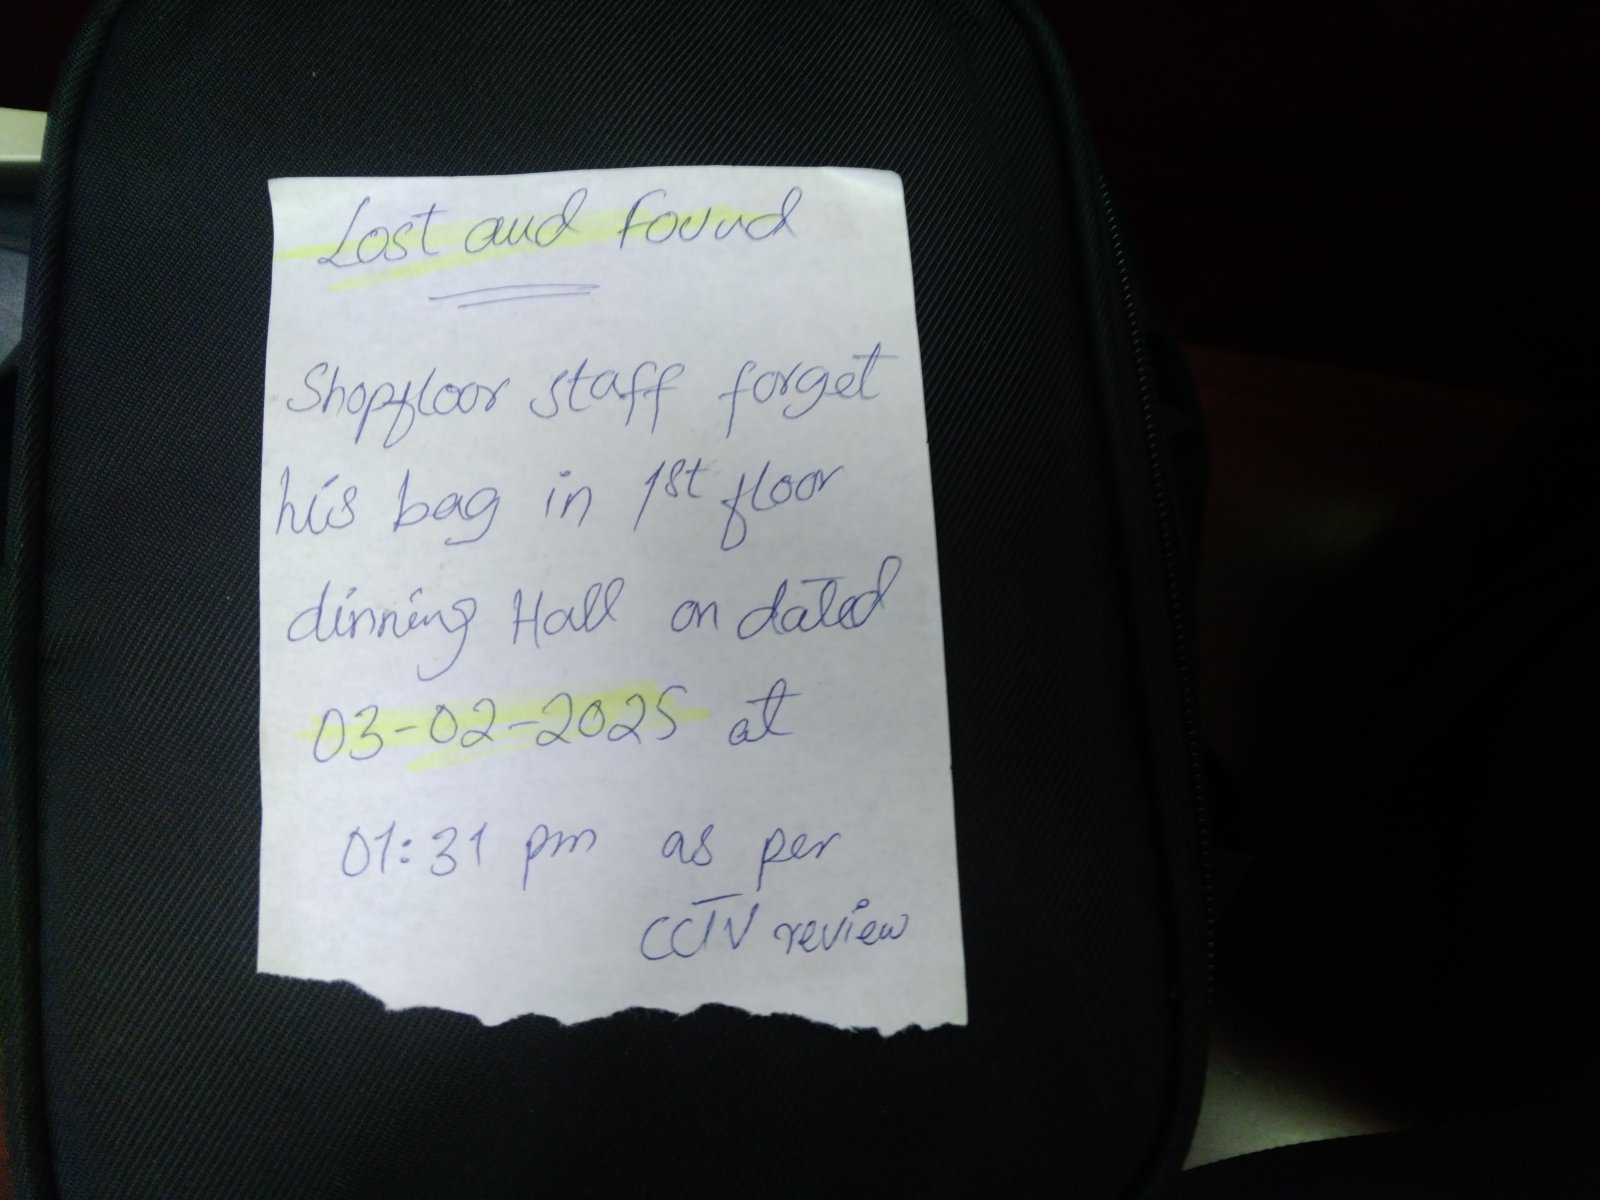 Lost and Found
Shopfloor staff forget
his bag in 1st floor
dinning Hall on dated
03-02-2025 at
01:31 pm as per
CCTV review